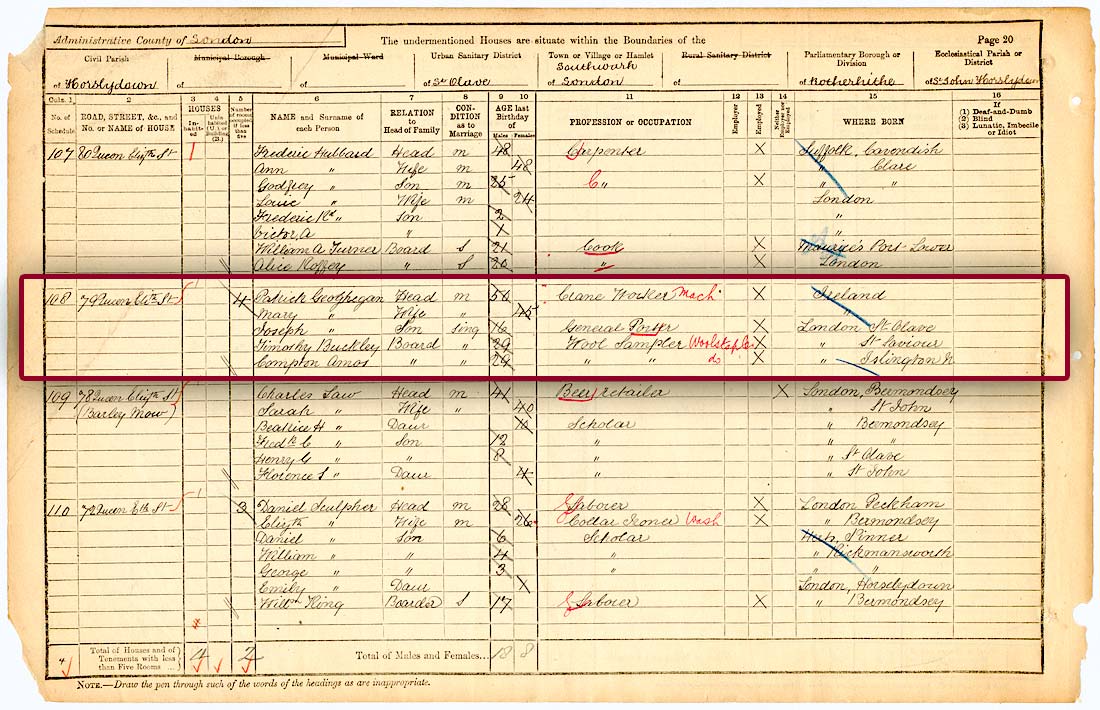 Administrative County of London
The undermentioned Houses are situate within the Boundaries of the
Page 20
Civil Parish
of Horslydown
Municipal Borough
of
Municipal Ward
of
Urban Sanitary District
of St Olave
Town or Village or Hamlet
Southwark
of London
Rural Sanitary District
of
Parliamentary Borough or Division
of Rotherhithe
Ecclesiastical Parish or District
of St John Horslydown
Cols. 1 2 3 4 5 6 7 8 9 10 11 12 13 14 15 16
No. of Schedule
ROAD, STREET, &c., and No. or NAME of HOUSE
HOUSES
In-habited
Uninhabited (U.) or Building (B.)
Number of rooms occupied if less than five
NAME and Surname of each Person
RELATION to Head of Family
CONDITION as to Marriage
AGE last Birthday of
Males Females
PROFESSION or OCCUPATION
Employer
Employed
Neither Employer nor Employed
WHERE BORN
If
(1) Deaf-and-Dumb
(2) Blind
(3) Lunatic, Imbecile or Idiot
107 80 Queen Elizth St 1 Frederic Hubbard Head m 48 Carpenter X Suffolk, Cavendish
Ann " Wife m 48 " Clare
Godfrey " Son m 25 C " X " "
Louie " Wife m 24 London
Frederic Rd " Son 2 "
Victor A " " 1 "
William A Turner Board S 21 Cook X Maurice's Port Lower
Alice Roffey " S 20 " X London
108 79 Queen Elizth St 1 4 Patrick Geoghegan Head m 50 Crane Worker Mach X Ireland
Mary " Wife " 45 "
Joseph " Son sing 16 General Porter X London St Olave
Timothy Buckley Board " 29 Wool Sampler Woolstapler X " St Saviour
Compton Amos " " 29 " " do X " Islington N
109 78 Queen Elizth St 1 Charles Law Head m 41 Beer retailer X London, Bermondsey
(Barley Mow) Sarah " Wife " 40 " St John
Beatrice H " Daur 10 Scholar " Bermondsey
Fredk C " Son 12 " " "
Henry G " " 8 " " St Olave
Florence S " Daur 4 " " St John
110 72 Queen Eth St 1 3 Daniel Sculpher Head m 28 G Laborer X London Peckham
Elizth " Wife m 26 Collar Ironer Wash X " Bermondsey
Daniel " Son 6 Scholar Herts, Pinner
William " " 4 " " Rickmansworth
George " " 3 " "
Emily " Daur X London, Horselydown
Willm King Boarder S 17 G Laborer X " Bermondsey
4 Total of Houses and of Tenements with less than Five Rooms ... 4 2 Total of Males and Females... 18 8
NOTE.—Draw the pen through such of the words of the headings as are inappropriate.